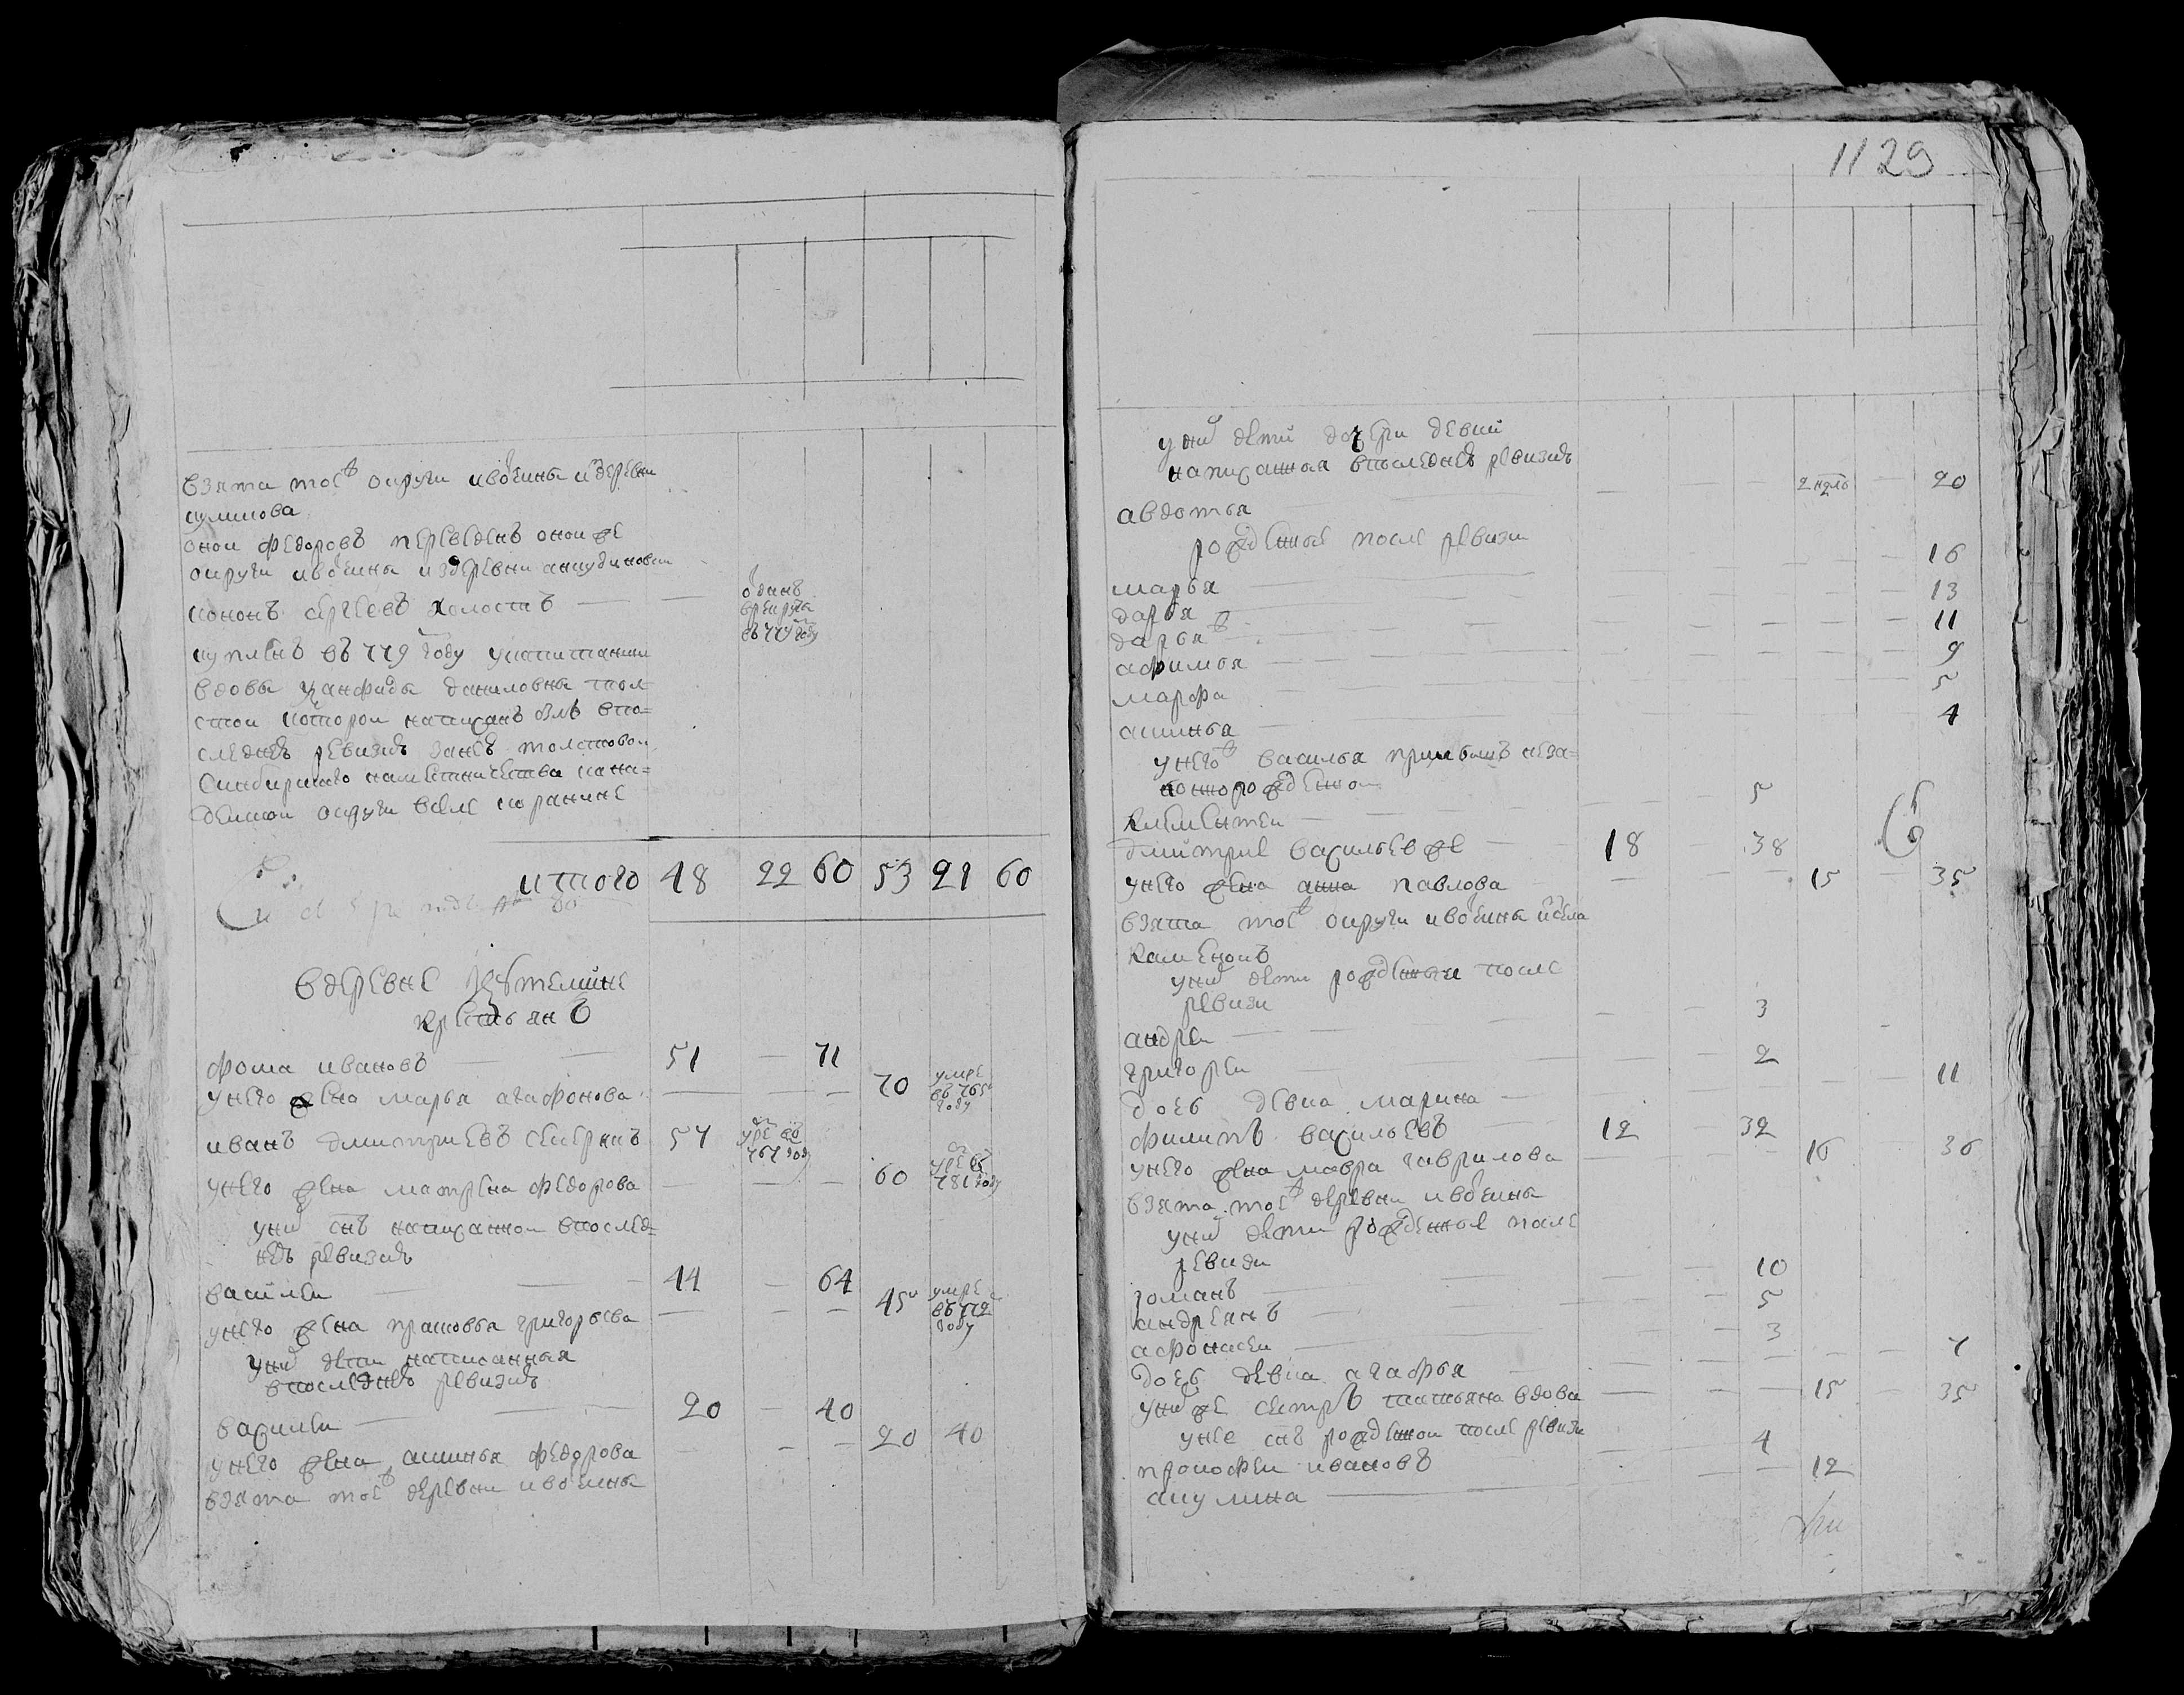 взята тоеж округи ивоеины издеревни
куликова
оной федоровъ переведенъ оной же
округи ивоеины издеревни
кононъ сергеевъ холостъ — — отданъ врекруты въ 779 году
купленъ въ 779 году укапитанши
вдовы даниловны тол
стои которои написанъ былъ впо=
следнеѣ ревизиѣ занеѣ толстовои
Синбирскаго наместничества кана=
деискои округи вселе
итого 48 22 60 53 21 60
вдеревне
крестьянъ
фома ивановъ — 51 — 71
унего жена марья агафонова — — — 70 умре въ 765 году
иванъ дмитриевъ 57 умре въ 767 году
унего жена матрена федорова — — — 60 умре въ 781 году
уних снъ написаннои впослед=
неѣ ревизиѣ
василеи — 44 — 64
унего жена прасковья григорьева — — — 45 умре въ 772 году
уних дети написанныя
впоследнеѣ ревизиѣ
василеи — 20 — 40
унего жена акилина федорова — — — 20 40
взята тоеж деревни ивоеины
1129
уних дети дочери девки
написанныя впоследнеѣ ревизиѣ
авдотья — — — — 2 недль — 20
рожденные после ревизи
марья — 16
дарья — 13
дарья ж — 11
афимья — 9
марфа — 5
акилина — 4
унегож василья приемышъ неза=
коннорожденнои
клементеи — — — 5
дмитрие васильев же — 18 38
унего жена анна павлова — — — 15 — 35
взята тоеж округи ивоеины исела
каменокъ
уних дети рожденныя после
ревизи
андреи — — — 3
григореи — — — 2
дочь девка марина — — — 11
филипъ васильевъ 12 32
унего жена мавра гаврилова — — — 16 36
взята тоеж деревни ивоеины
уних дети рожденные после
ревизи
романъ — — — 10
андреянъ — — — 5
афонасеи — — — 3
дочь девка агафья — — — 7
уних же сестръ татьяна вдова — — — 15 35
унее снъ рожденои после ревизи
прокофеи ивановъ — — 4
акулина — — — 12